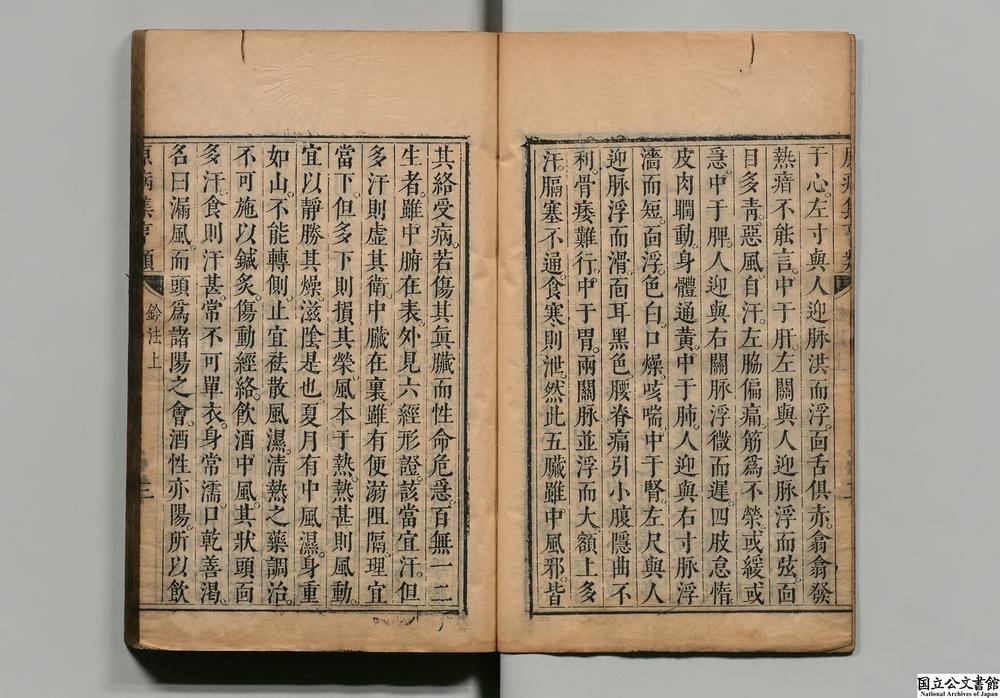 于心左寸與人迎脉洪而浮面舌俱赤翕翕發
熱瘖不能言中于肝左關與人迎脉浮而弦面
目多青惡風自汗左脇偏痛筋爲不榮或緩或
急中于脾人迎與右關脉浮微而遲四肢怠惰
皮肉瞤動身體通黄中于肺人迎與右寸脉浮
濇而短面浮色白口燥咳喘中于腎左尺與人
迎脉浮而滑面耳黑色腰脊痛引小腹隱曲不
利骨痿難行中于胃兩關脉並浮而大額上多
汗膈塞不通食寒則泄然此五臟雖中風邪皆
其絡受病若傷其眞臟而性命危急百無一二
生者雖中腑在表外見六經形證該當宜汗但
多汗則虛其衛中臟在裏雖有便溺阻隔理宜
當下但多下則損其榮風本于熱熱甚則風動
宜以靜勝其燥滋陰是也夏月有中風濕身重
如山不能轉側止宜袪散風濕淸熱之藥調治
不可施以鍼灸傷動經絡飲酒中風其狀頭面
多汗食則汗甚常不可單衣身常濡口乾善渴
名曰漏風而頭爲諸陽之會酒性亦陽所以飲
原病集亨類
鈐法上
三
国立公文書館
National Archives of Japan